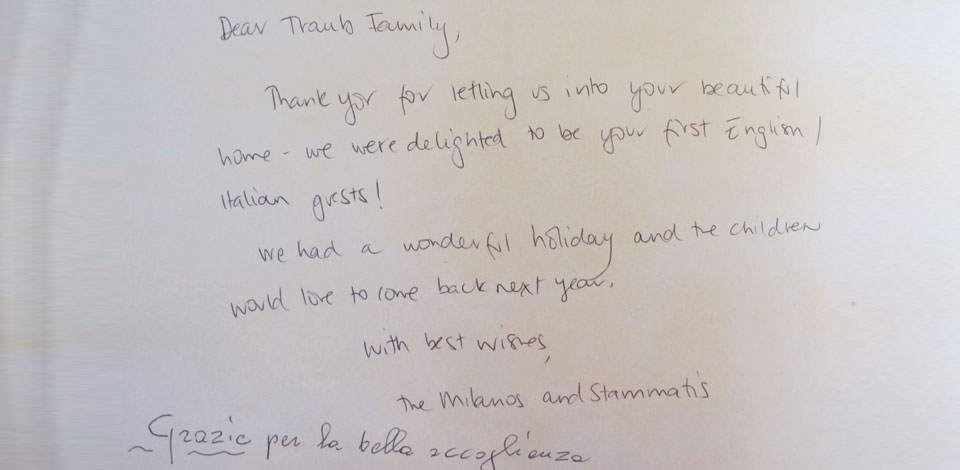 Dear Traub Family,
Thank you for letting us into your beautiful
home - we were delighted to be your first English /
Italian guests!
We had a wonderful holiday and the children
would love to come back next year.
With best wishes,
the Milanos and Stammatis
Grazie per la bella accoglienza